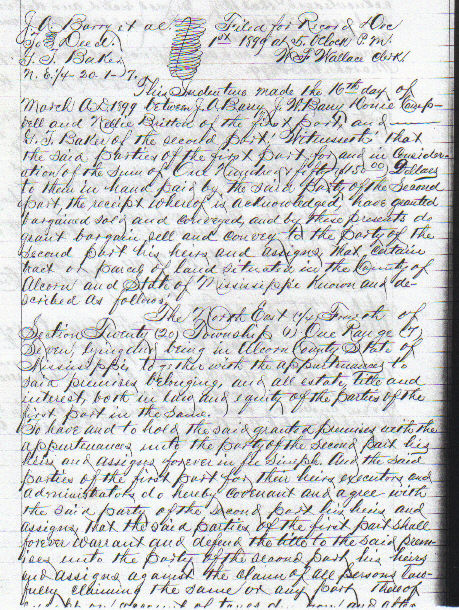 J. A. Barry et al Filed for Record Dec
To } Deed 1st 1899 at 5. Oclock P.M.
G. T. Baker W. F. Wallace Clerk.
N.E. 1/4 20-1-7.
This Indenture made the 16th day of
March A.D. 1899 between J. A. Barry J. W. Barry Camp-
bell and Nellie Britten of the first part, and
G. T. Baker of the second part, Witnesseth that
the said parties of the first part, for and in Consider-
ation of the Sum of One Hundred & fifty $150.00 Dollars
to them in hand paid by the said Party of the Second
part, the receipt whereof is acknowledged, have granted
bargained sold and conveyed, and by these presents do
grant bargain, sell and convey to the party of the
second part his heirs and assigns, that certain
tract or parcel of land situated in the County of
Alcorn and State of Mississippi known and de-
scribed as follows,
The North East 1/4 Fourth of
Section Twenty (20) Township (1) One Range (7)
Seven, lying and being in Alcorn County State of
Mississippi together with the appurtenances to
said premises belonging, and all estate, title and
interest, both in law and equity of the parties of the
first part in the same.
To have and to hold the said granted premises with the
appurtenances unto the party of the second part his
heirs and assigns forever in fee simple. And the said
parties of the first part for their heirs executors and
administrators, do hereby covenant and agree with
the said party of the second part his heirs and
assigns, that the said parties of the first part shall
forever warrant and defend the title to the said prem-
ises unto the party of the second part, his heirs
and assigns against the claim of all persons law-
fully claiming the same or any part thereof